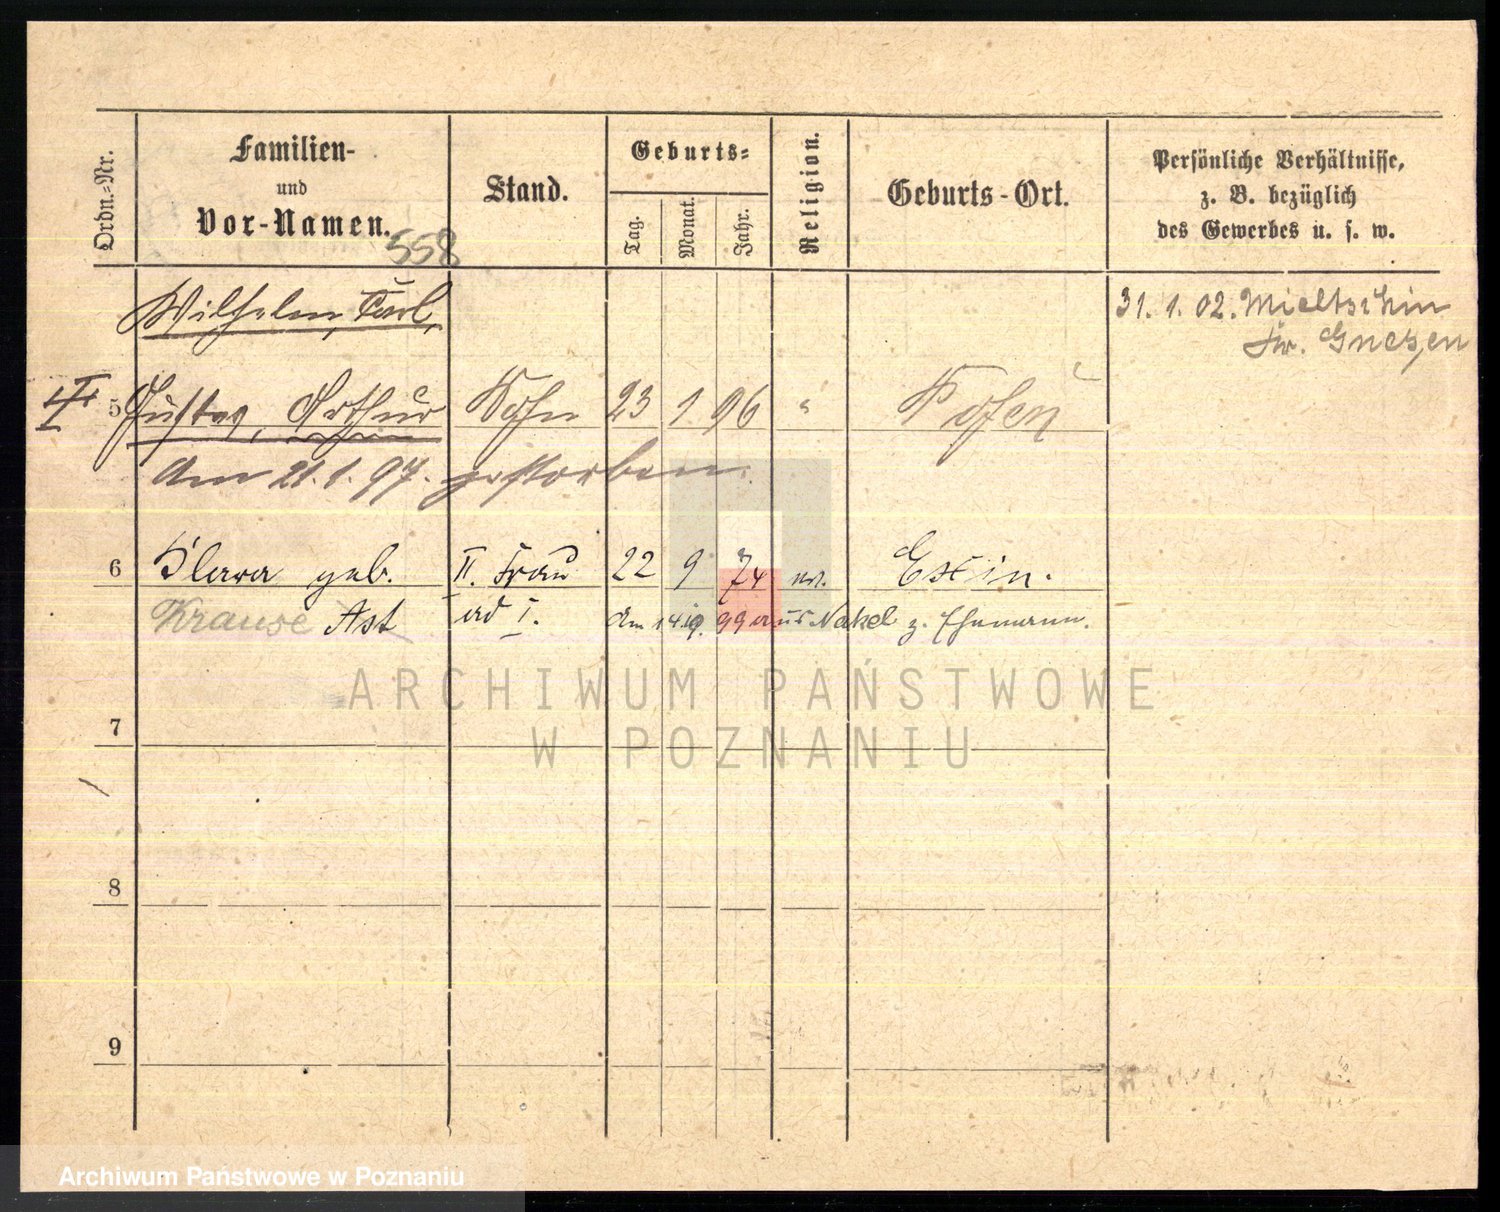 Ordn.-Nr.
Familien-
und
Vor-Namen.
558
Stand.
Geburts-
Tag.
Monat.
Jahr.
Religion.
Geburts-Ort.
Persönliche Verhältnisse,
z. B. bezüglich
des Gewerbes u. s. w.
Wilhelm, Carl,
31. 1. 02. Mieltschin
Kr. Gnesen
5 Gustav, Arthur Sohn 23 1 96 " Posen
Am 21.1.97. gestorben.
6 Klara geb. II. Frau 22 9 74 Exin.
Krause Ast ad I. am 14.9. 99 aus Nakel z. Ehemann.
ARCHIWUM PAŃSTWOWE
W POZNANIU
7
8
9
Archiwum Państwowe w Poznaniu